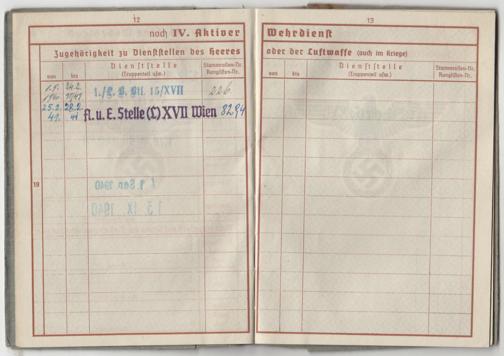 12
noch IV. Aktiver
Zugehörigkeit zu Dienststellen des Heeres
von
bis
Dienststelle
(Truppenteil usw.)
Stammrollen-Nr.
Ranglisten-Nr.
15/XVII
226
25.2. 28.2.
41. 41
A. u. E. Stelle (L) XVII Wien
8294
19
1940
1940
13
Wehrdienst
oder der Luftwaffe (auch im Kriege)
von
bis
Dienststelle
(Truppenteil usw.)
Stammrollen-Nr.
Ranglisten-Nr.